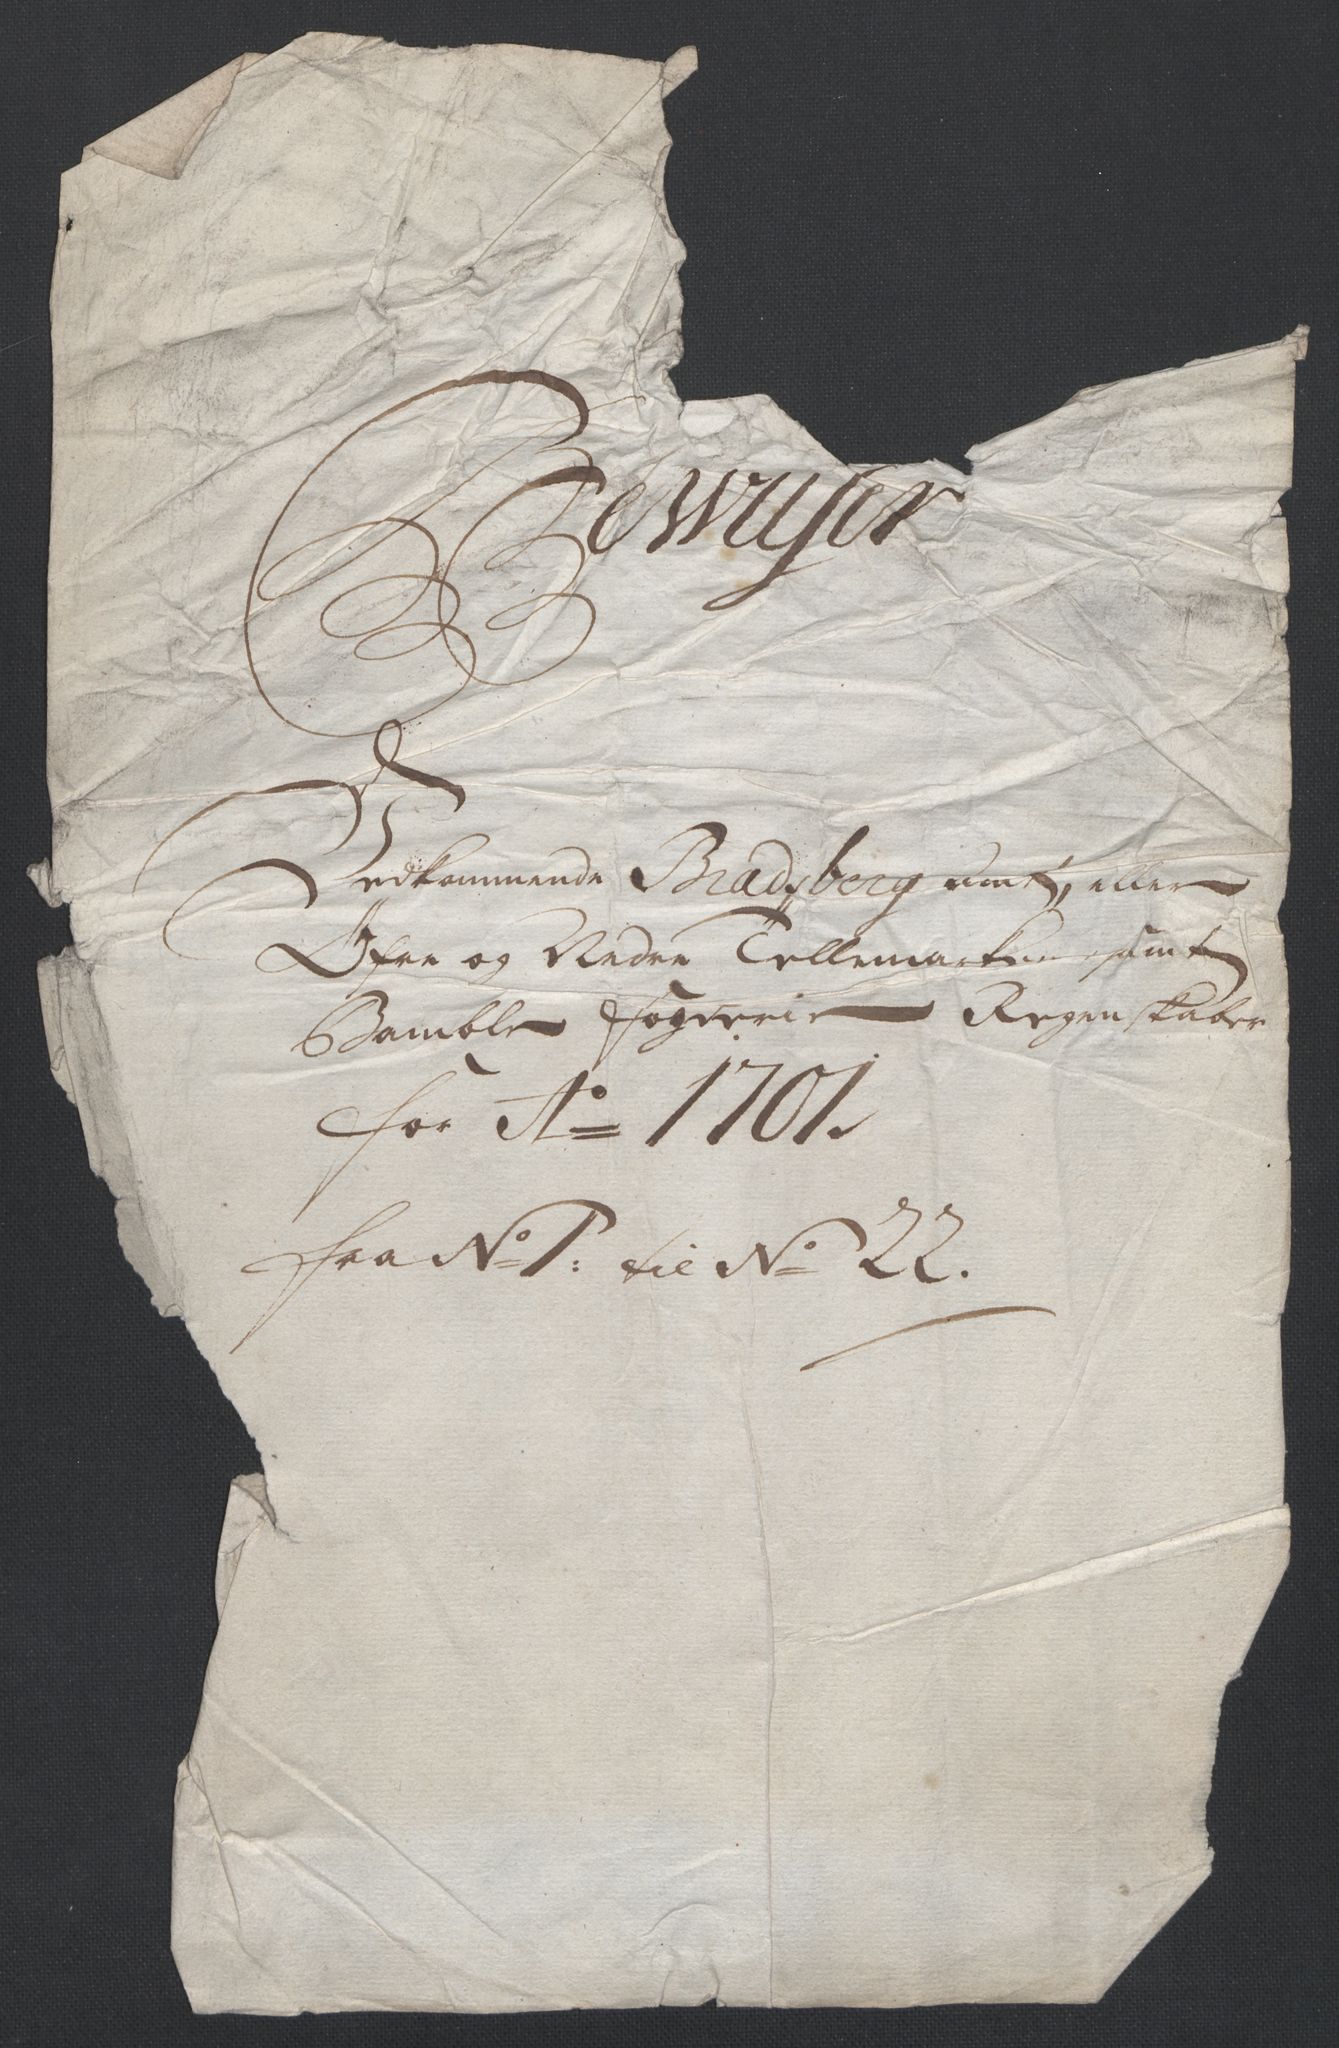 Bewiiser
Vedkommende Bradsberg amt, eller
Øfre og Nedre Tellemarken samt
Bamble fogderie Regenskaber
for Ao 1701.
fra No 1: til No 22.